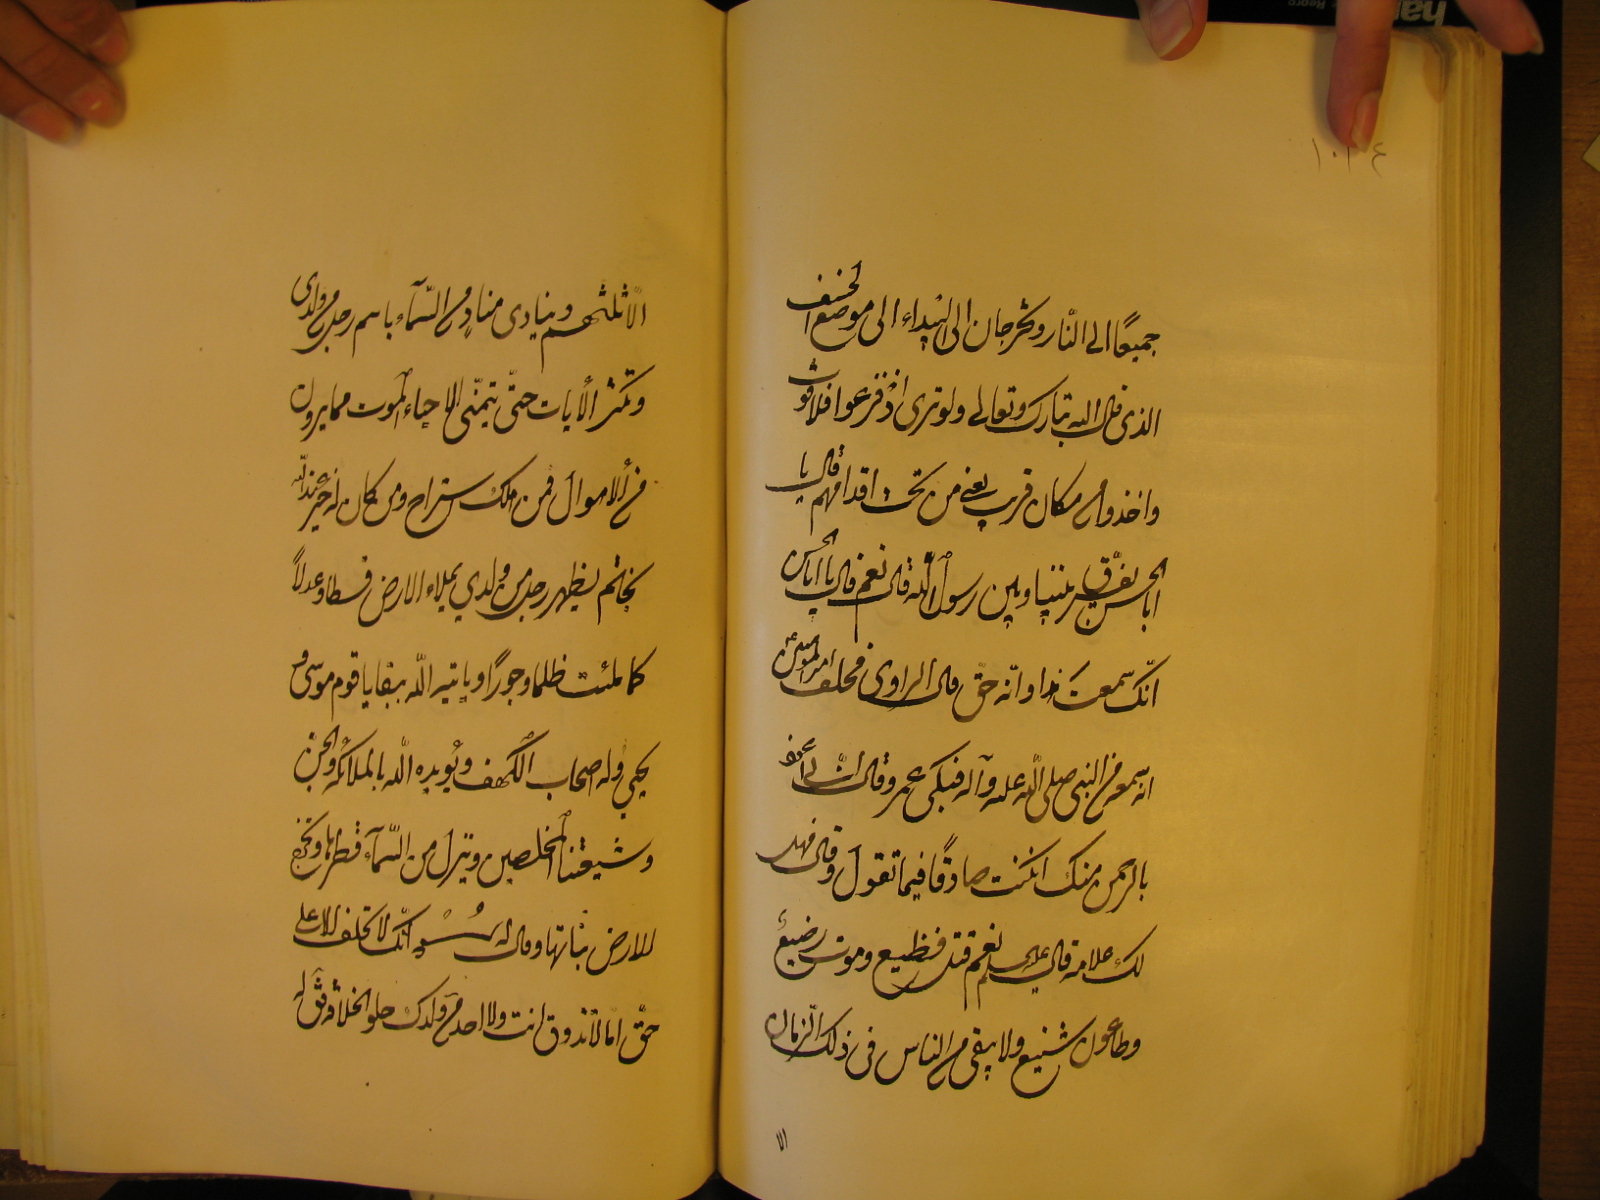 جميعًا الى النّار و تخرجان الى البيداء الى موضع الخسف
الذى قال الله تبارك و تعالى ولو ترى اذ فزعوا فلا فوت
واخذوا من مكان قريب يعنى من تحت اقدامهم قال يا
ابا الحسن يفرّق بيننا وبين رسول اللّه قال نعم قال يا ابا الحسن
انّك سمعت هذا وانّه حقّ قال الراوى فحلف امير المؤمنين
انه سمعه من النبى صلى اللّه عليه وآله فبكى عمر وقال انّى اعوذ
بالرحمن منك ان كنت صادقًا فيما تقول وقال فهل
لك علامه قال عليه السلم نعم قتل فظيع وموت رضيع
وطاعون شنيع ولا يبقى من الناس فى ذلك الزمان
الّا ثلثهم وينادى مناد من السّمآء باسم رجل من ولدى
وتكثر الأيات حتّى يتمنّى الاحياء الموت مما يرون
من الاموال فمن هلك ستراح ومن كان له خير عند اللّه
نجا ثم يظهر رجل من ولدي يملاء الارض قسطا وعدلاً
كما ملئت ظلما وجورًا وياتيه اللّه ببقايا قوم موسى و
يحيي له اصحاب الكهف ويؤيده اللّه بالملائكه والجن
وشيعتنا المخلصين وينزل من السّمآء قطرها وتخرج
للارض نباتها وقال له انّك لا تحلف الا على
حقّ امّا لا تذوق انت ولا احد من ولدك حلو الخلافة فثق له
الا